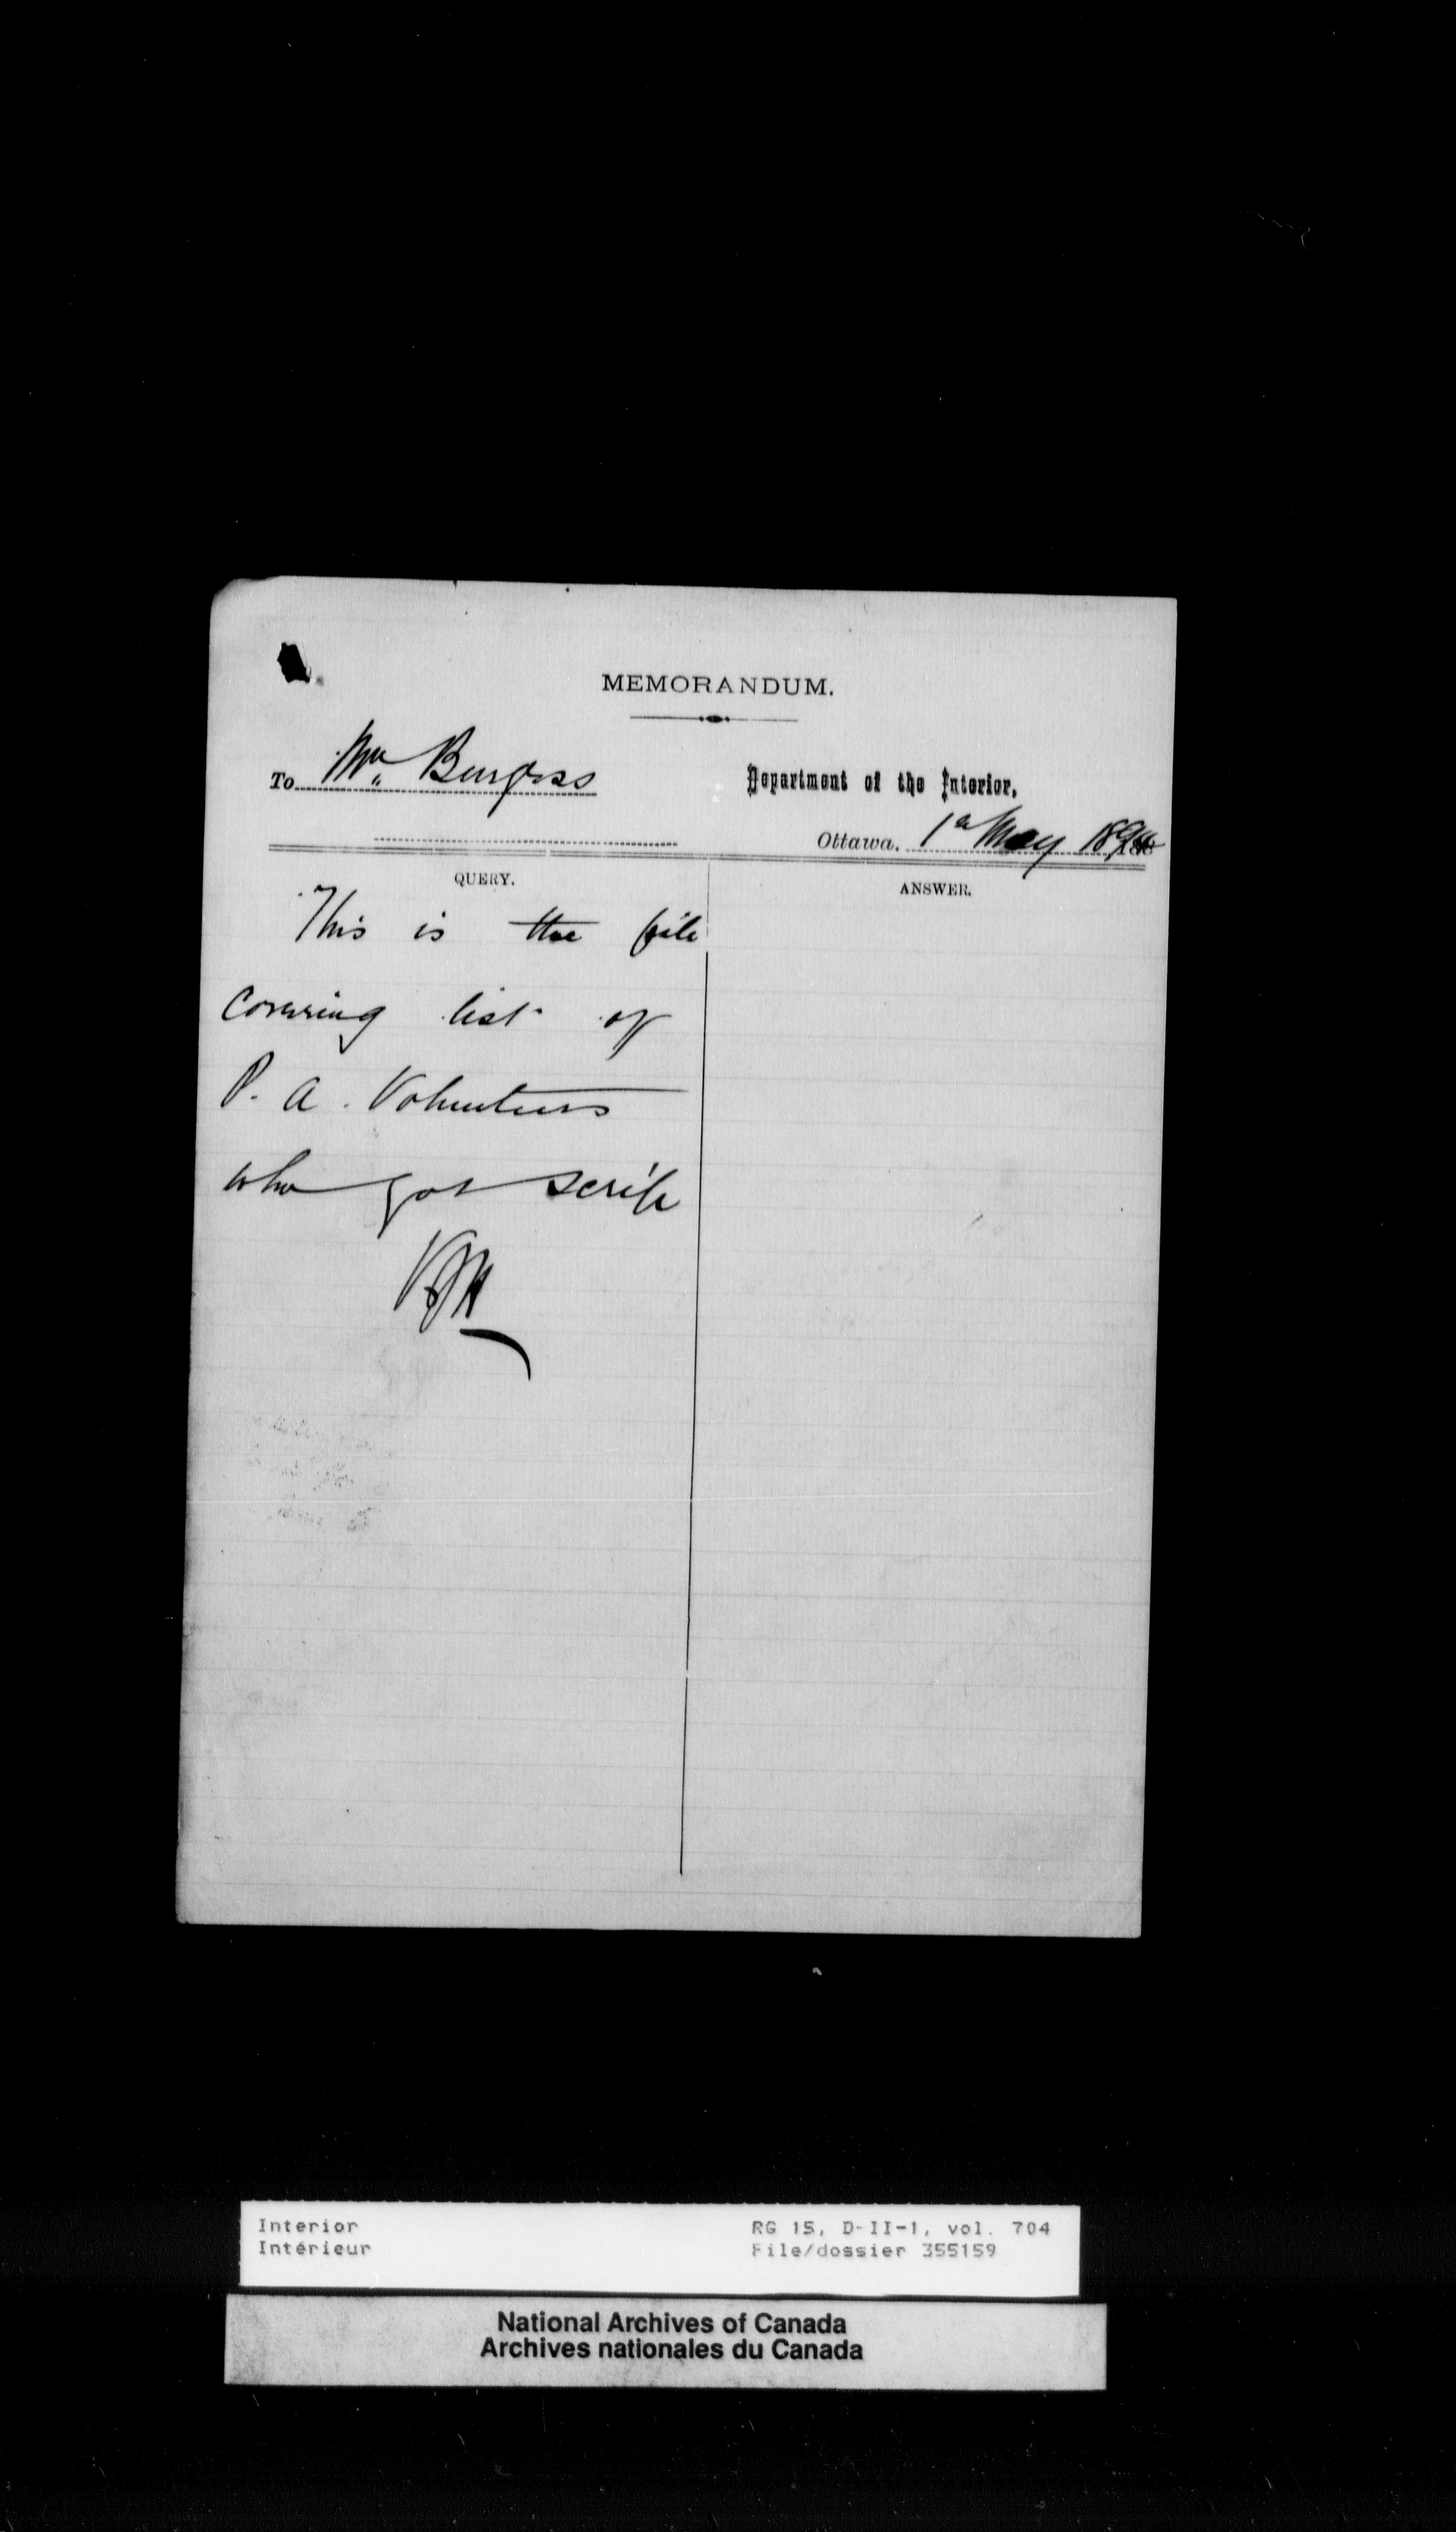 MEMORANDUM.
To Mr. Burgess
Department of the Interior,
Ottawa, 1st May
QUERY.
ANSWER.
This is the file
covering list of
P. A. Volunteers
who got scrip
Interior
Intérieur
RG 15, D-II-1, vol. 704
File/dossier 355159
National Archives of Canada
Archives nationales du Canada